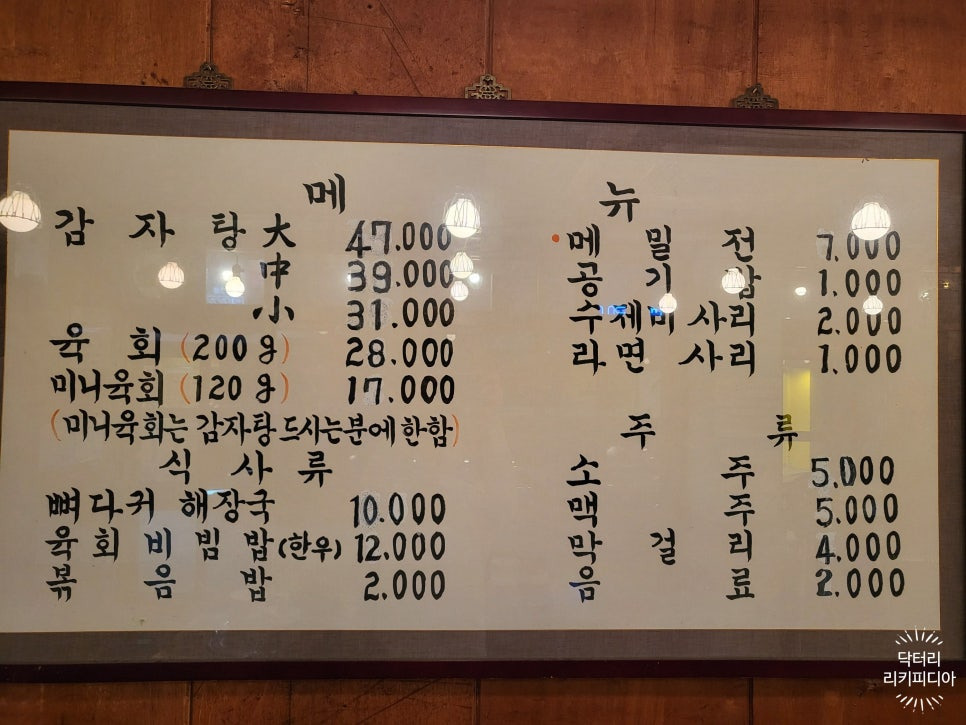 메 뉴
감 자 탕 大 47.000
中 39.000
小 31.000
육 회 (200g) 28.000
미니육회 (120g) 17.000
(미니육회는 감자탕 드시는분에 한함)
식 사 류
뼈다귀 해장국 10.000
육회비빔밥(한우) 12.000
볶 음 밥 2.000
메 밀 전 7.000
공 기 밥 1.000
수제비 사리 2.000
라면 사리 1.000
주 류
소 주 5.000
맥 주 5.000
막 걸 리 4.000
음 료 2.000
닥터리
리키피디아